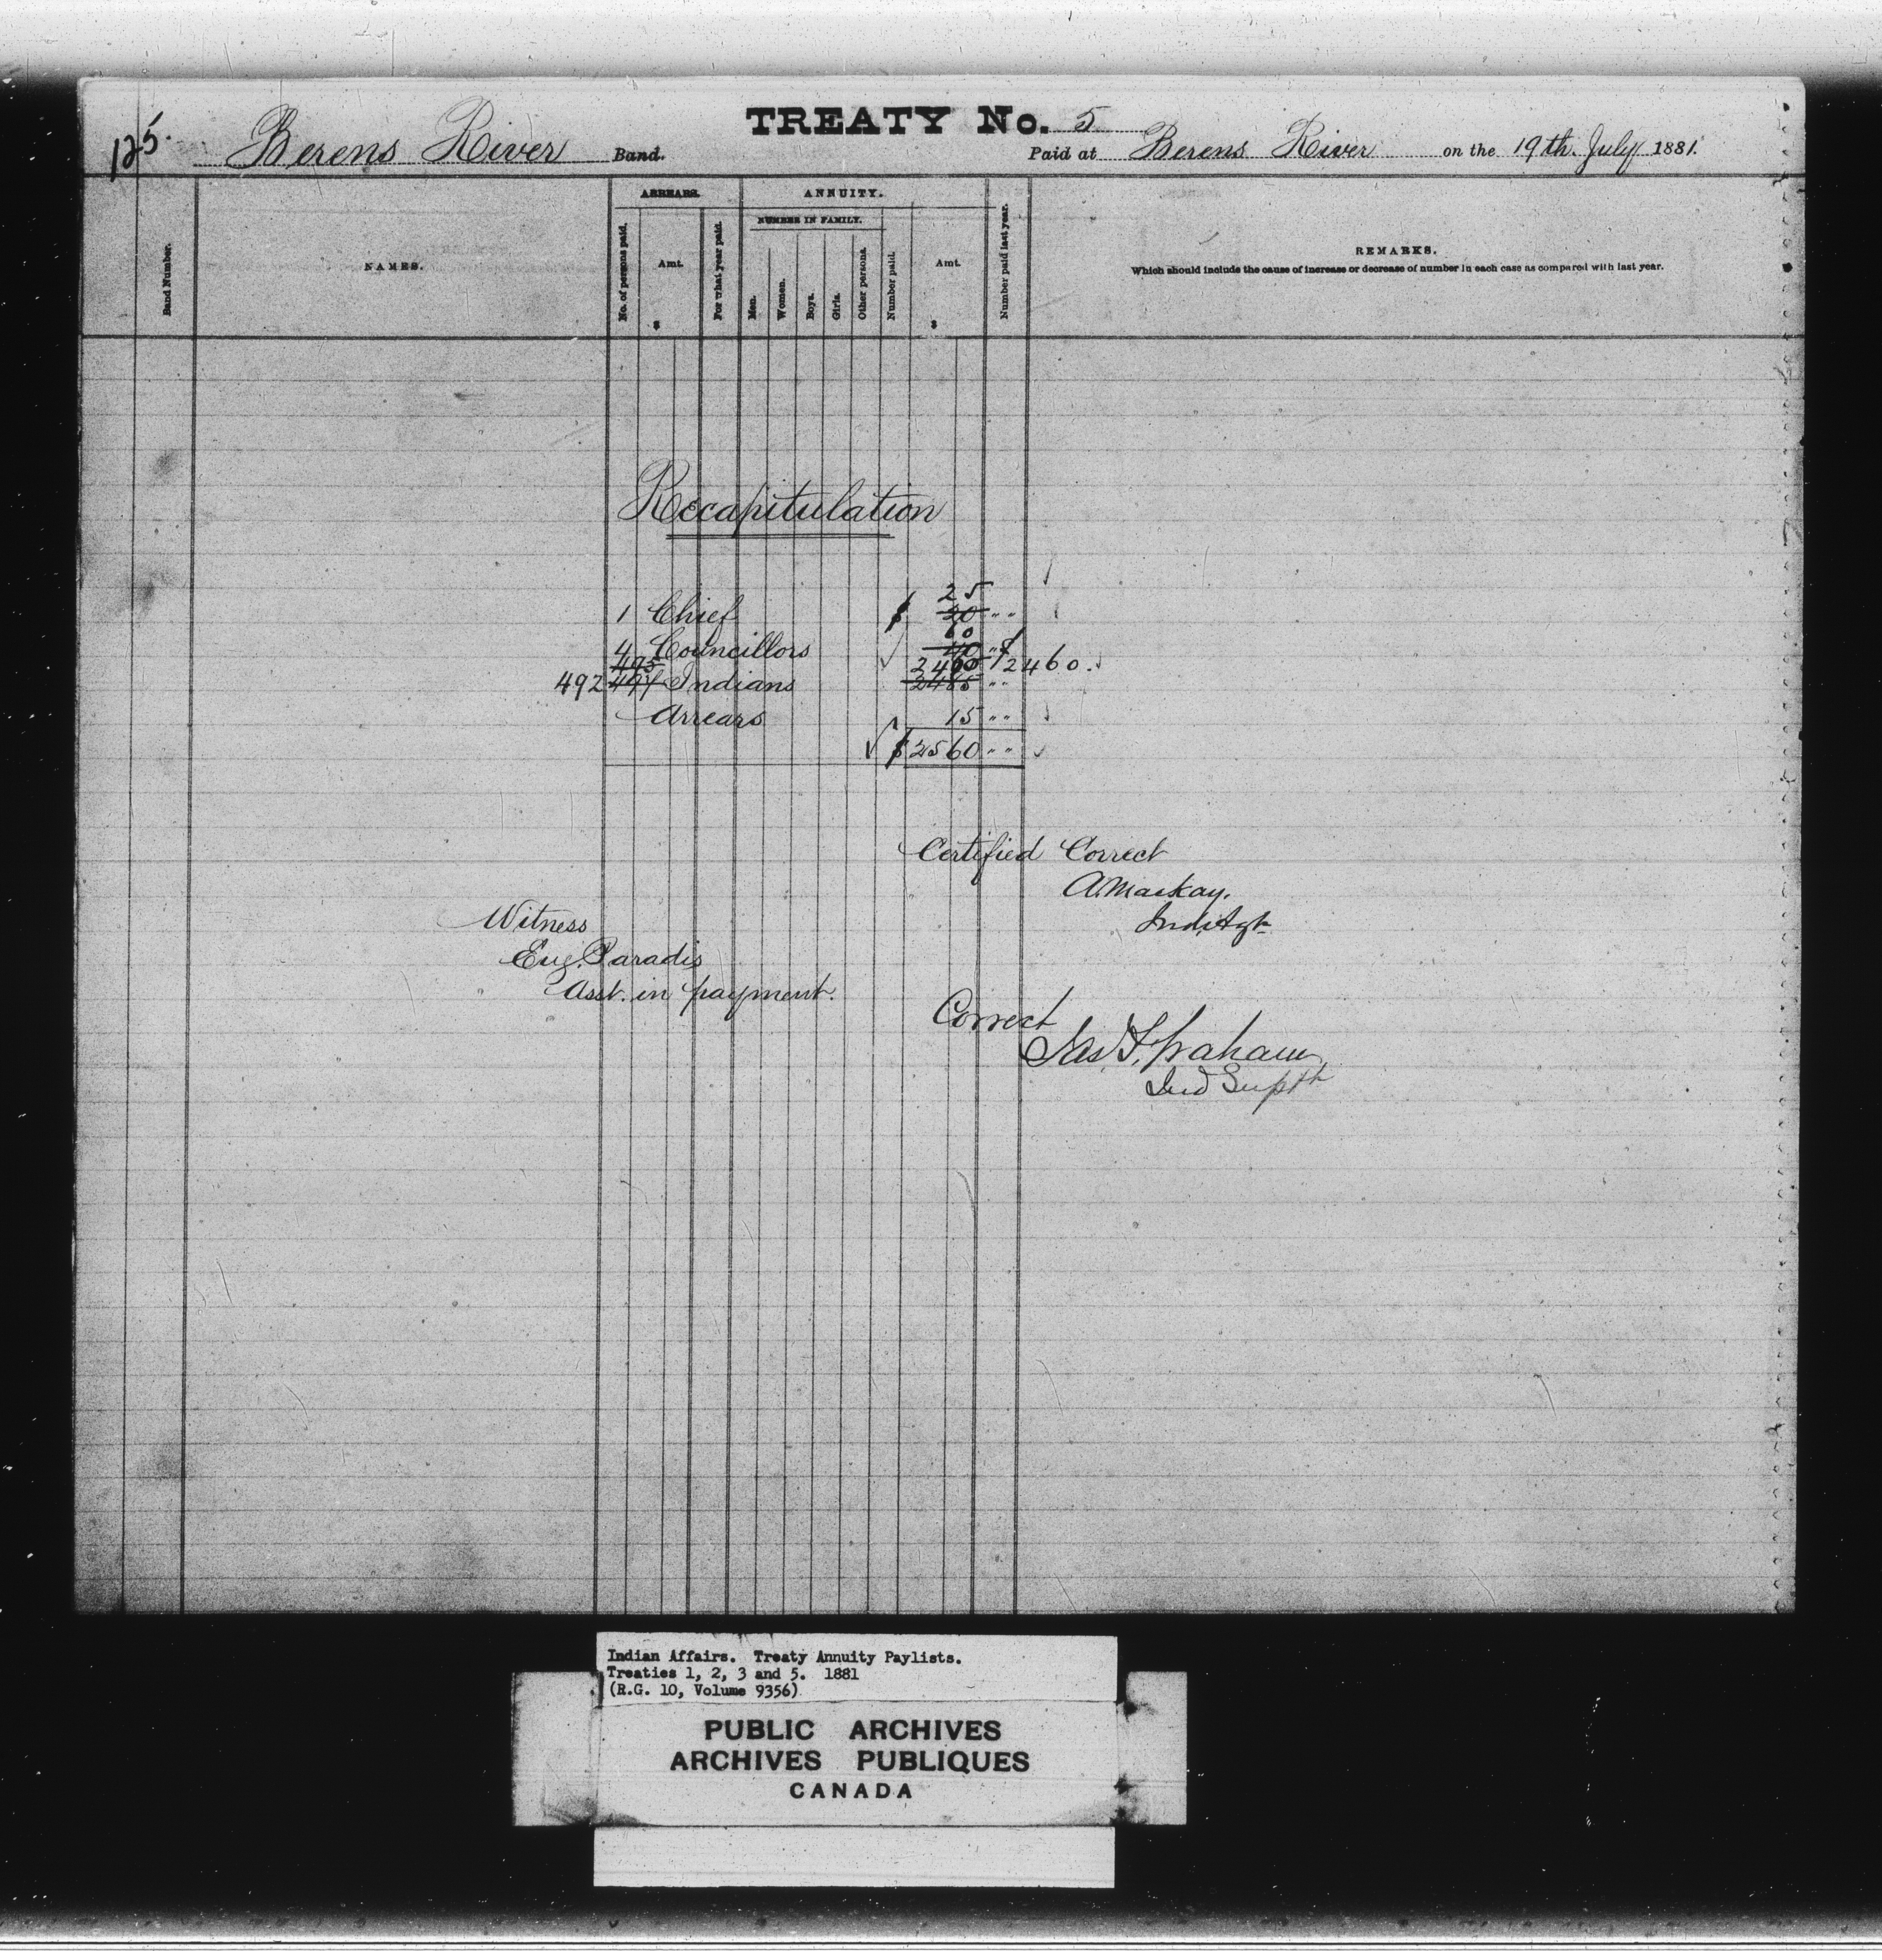 TREATY No. 5
125. Berens River Band. Paid at Berens River on the 19th July 1881.
ARREARS. ANNUITY.
NUMBER IN FAMILY.
Band Number. NAMES. No. of persons paid. Amt. $ For what year paid. Men. Women. Boys. Girls. Other persons. Number paid. Amt. $ Number paid last year. REMARKS.
Which should include the cause of increase or decrease of number in each case as compared with last year.
Recapitulation
25
1 Chief $ 20 " "
60
4 Councillors 40 "
495 2460 $2460.
492 497 Indians 2485 " "
Arrears 15 " "
$2560 " "
Certified Correct
A. Mackay.
Ind. Agt
Witness
Eug. Paradis
Asst. in payment.
Correct
Jas. F. Graham
Ind Supt
Indian Affairs. Treaty Annuity Paylists.
Treaties 1, 2, 3 and 5. 1881
(R.G. 10, Volume 9356)
PUBLIC ARCHIVES
ARCHIVES PUBLIQUES
CANADA